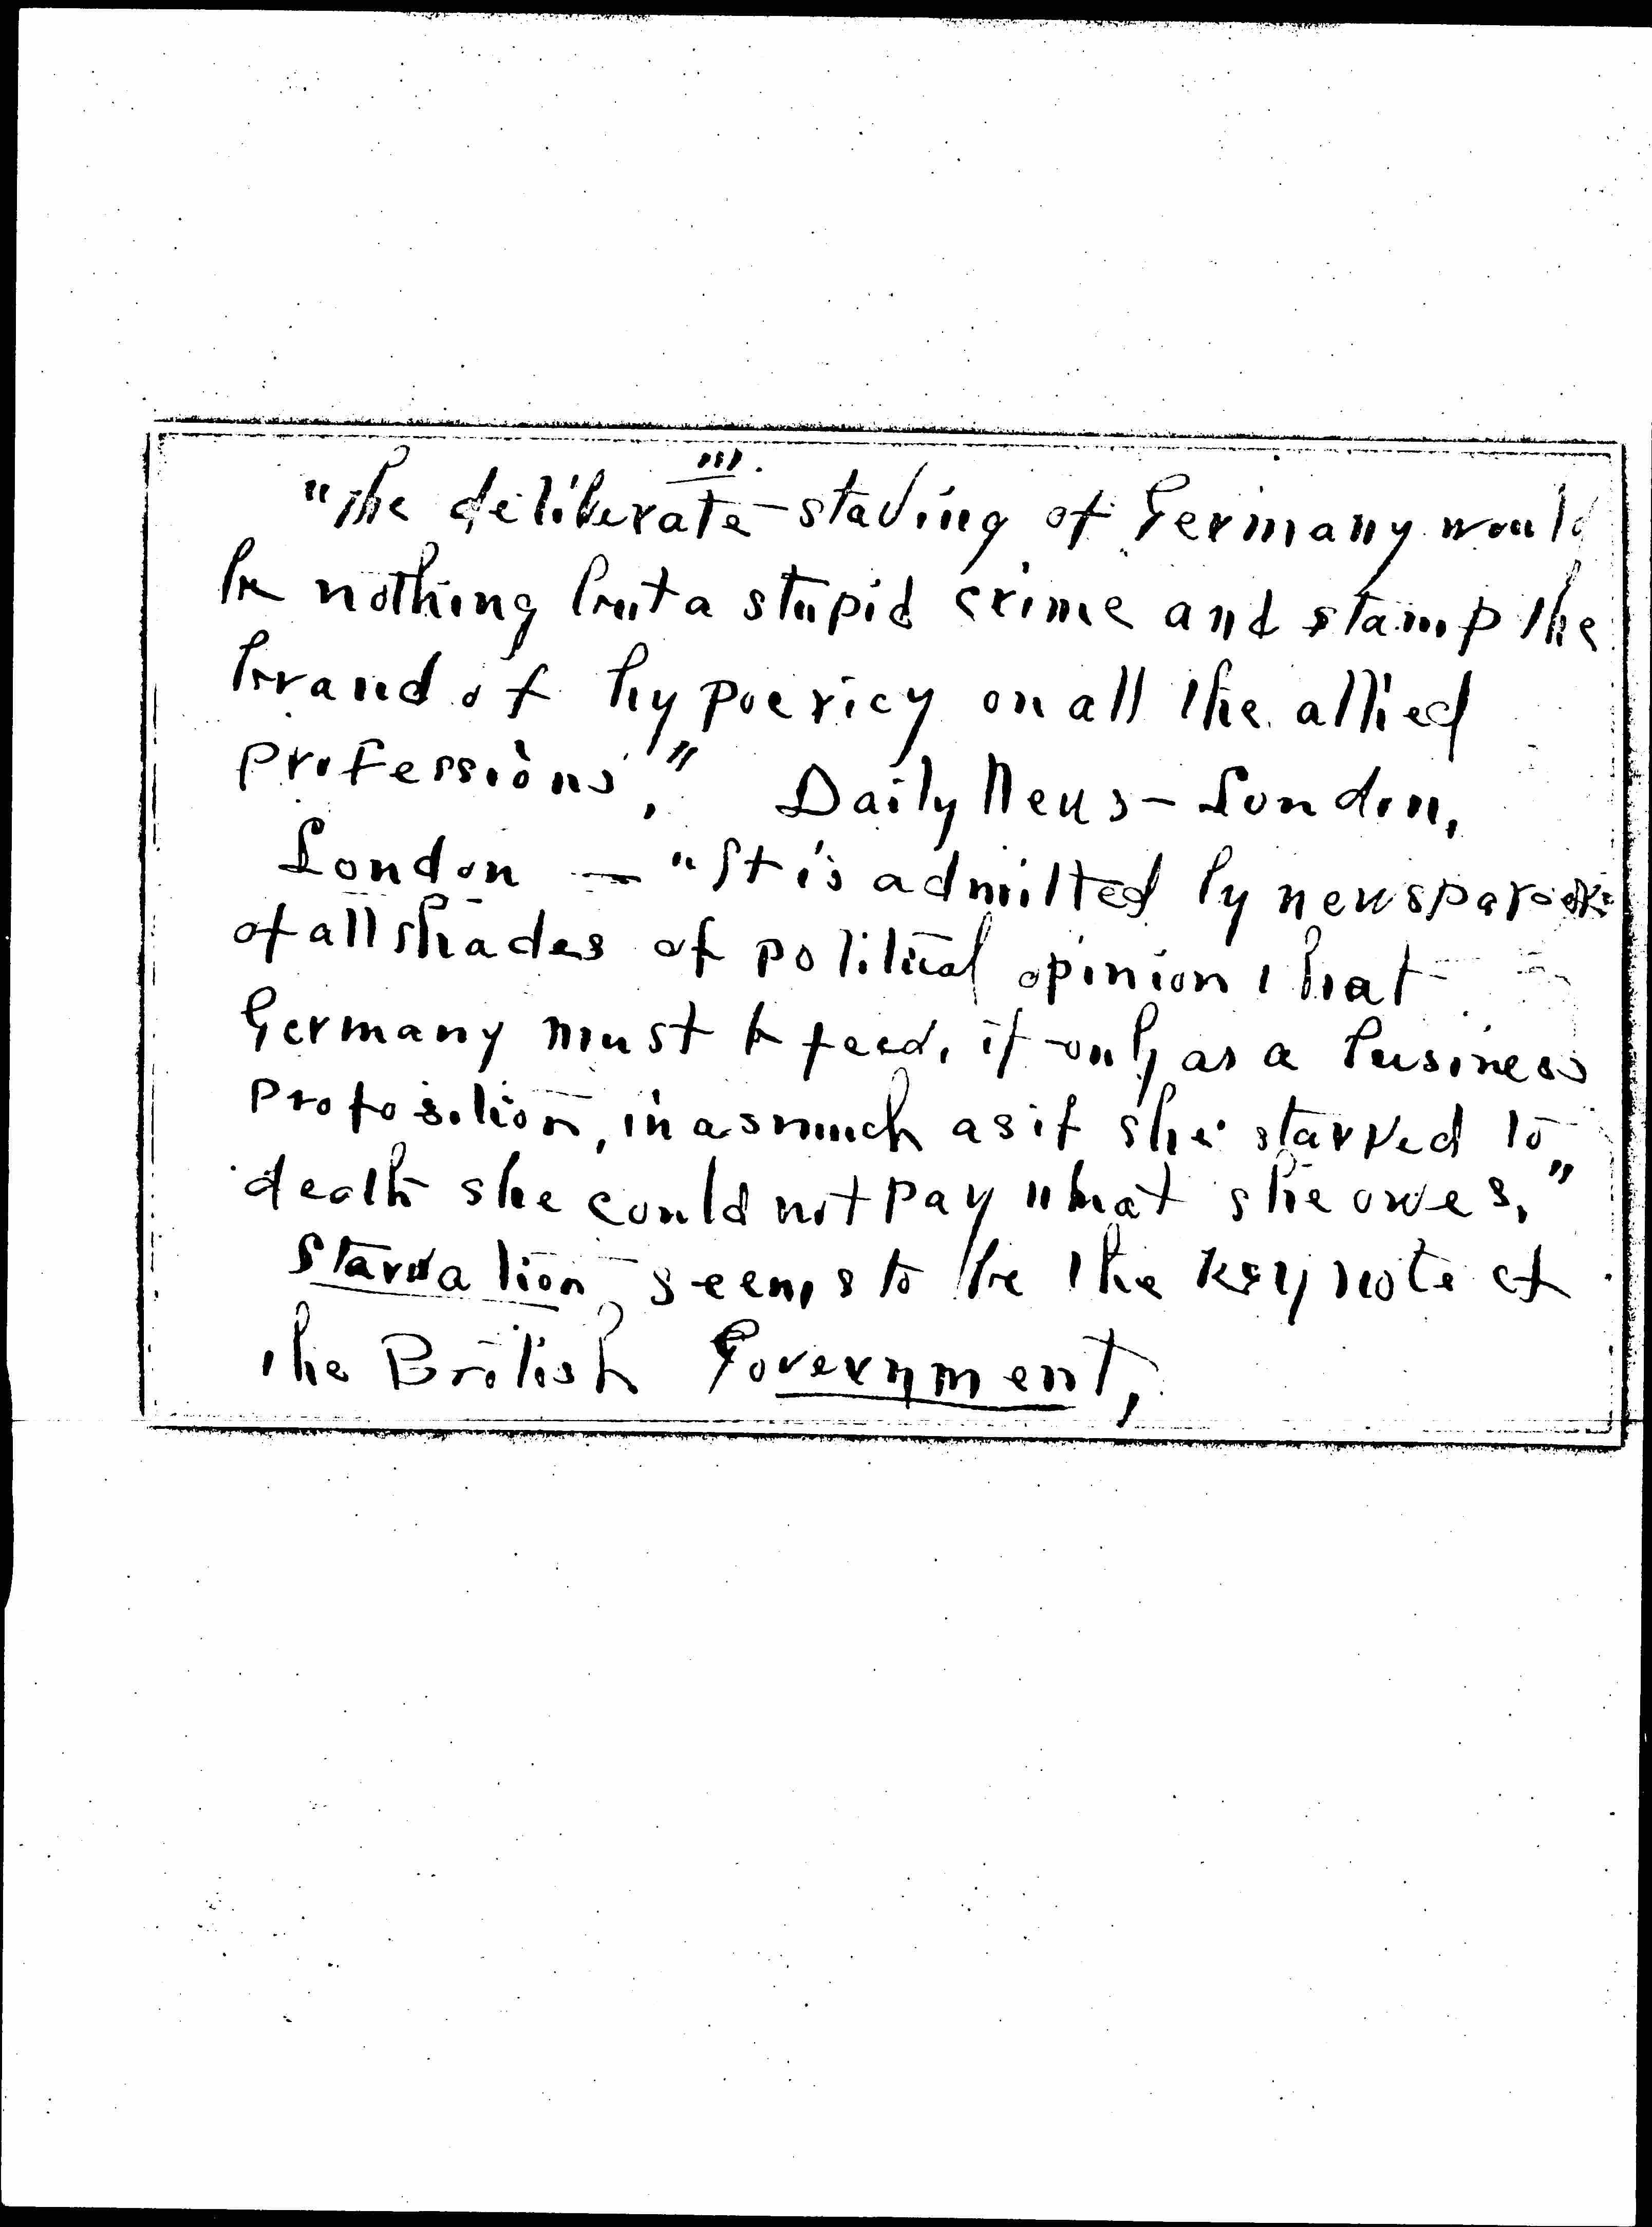 III.
"The deliberate staving of Germany would
be nothing but a stupid crime and stamp the
brand of hypocricy on all the allied
professions." Daily News - London,
London - "It is admitted by newspapers
of all shades of political opinion that
Germany must be feed, if only as a business
proposition, inasmuch as if she starved to
death she could not pay what she owes,"
Starvation seems to be the keynote of
the British Government,